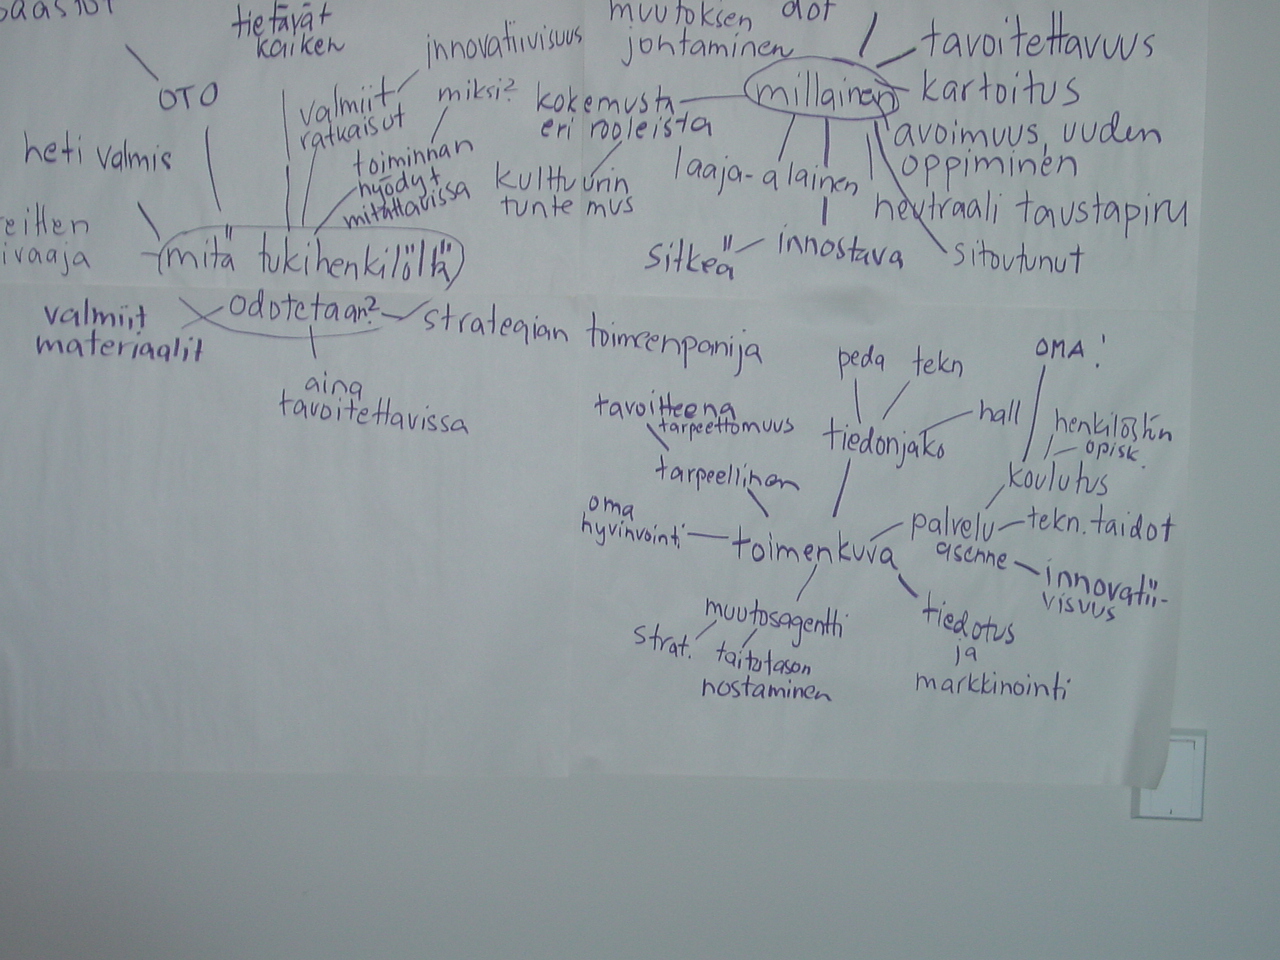 tietävät
kaiken
OTO
heti valmis
valmiit
ratkaisut
innovatiivisuus
miksi?
toiminnan
hyödyt
mitattavissa
mitä tukihenkilöltä
odotetaan?
valmiit
materiaalit
aina
tavoitettavissa
strategian toimeenpanija
muutoksen
johtaminen
millainen
tavoitettavuus
kartoitus
avoimuus, uuden
oppiminen
neutraali taustapiru
sitoutunut
kokemusta
eri rooleista
kulttuurin
tuntemus
laaja-alainen
innostava
sitkeä
peda
tekn
hall
tiedonjako
OMA!
henkilöstön
opisk.
koulutus
tavoitteena
tarpeettomuus
tarpeellinen
oma
hyvinvointi
toimenkuva
palvelu
asenne
tekn. taidot
innovatii-
visuus
muutosagentti
strat.
taitotason
nostaminen
tiedotus
ja
markkinointi